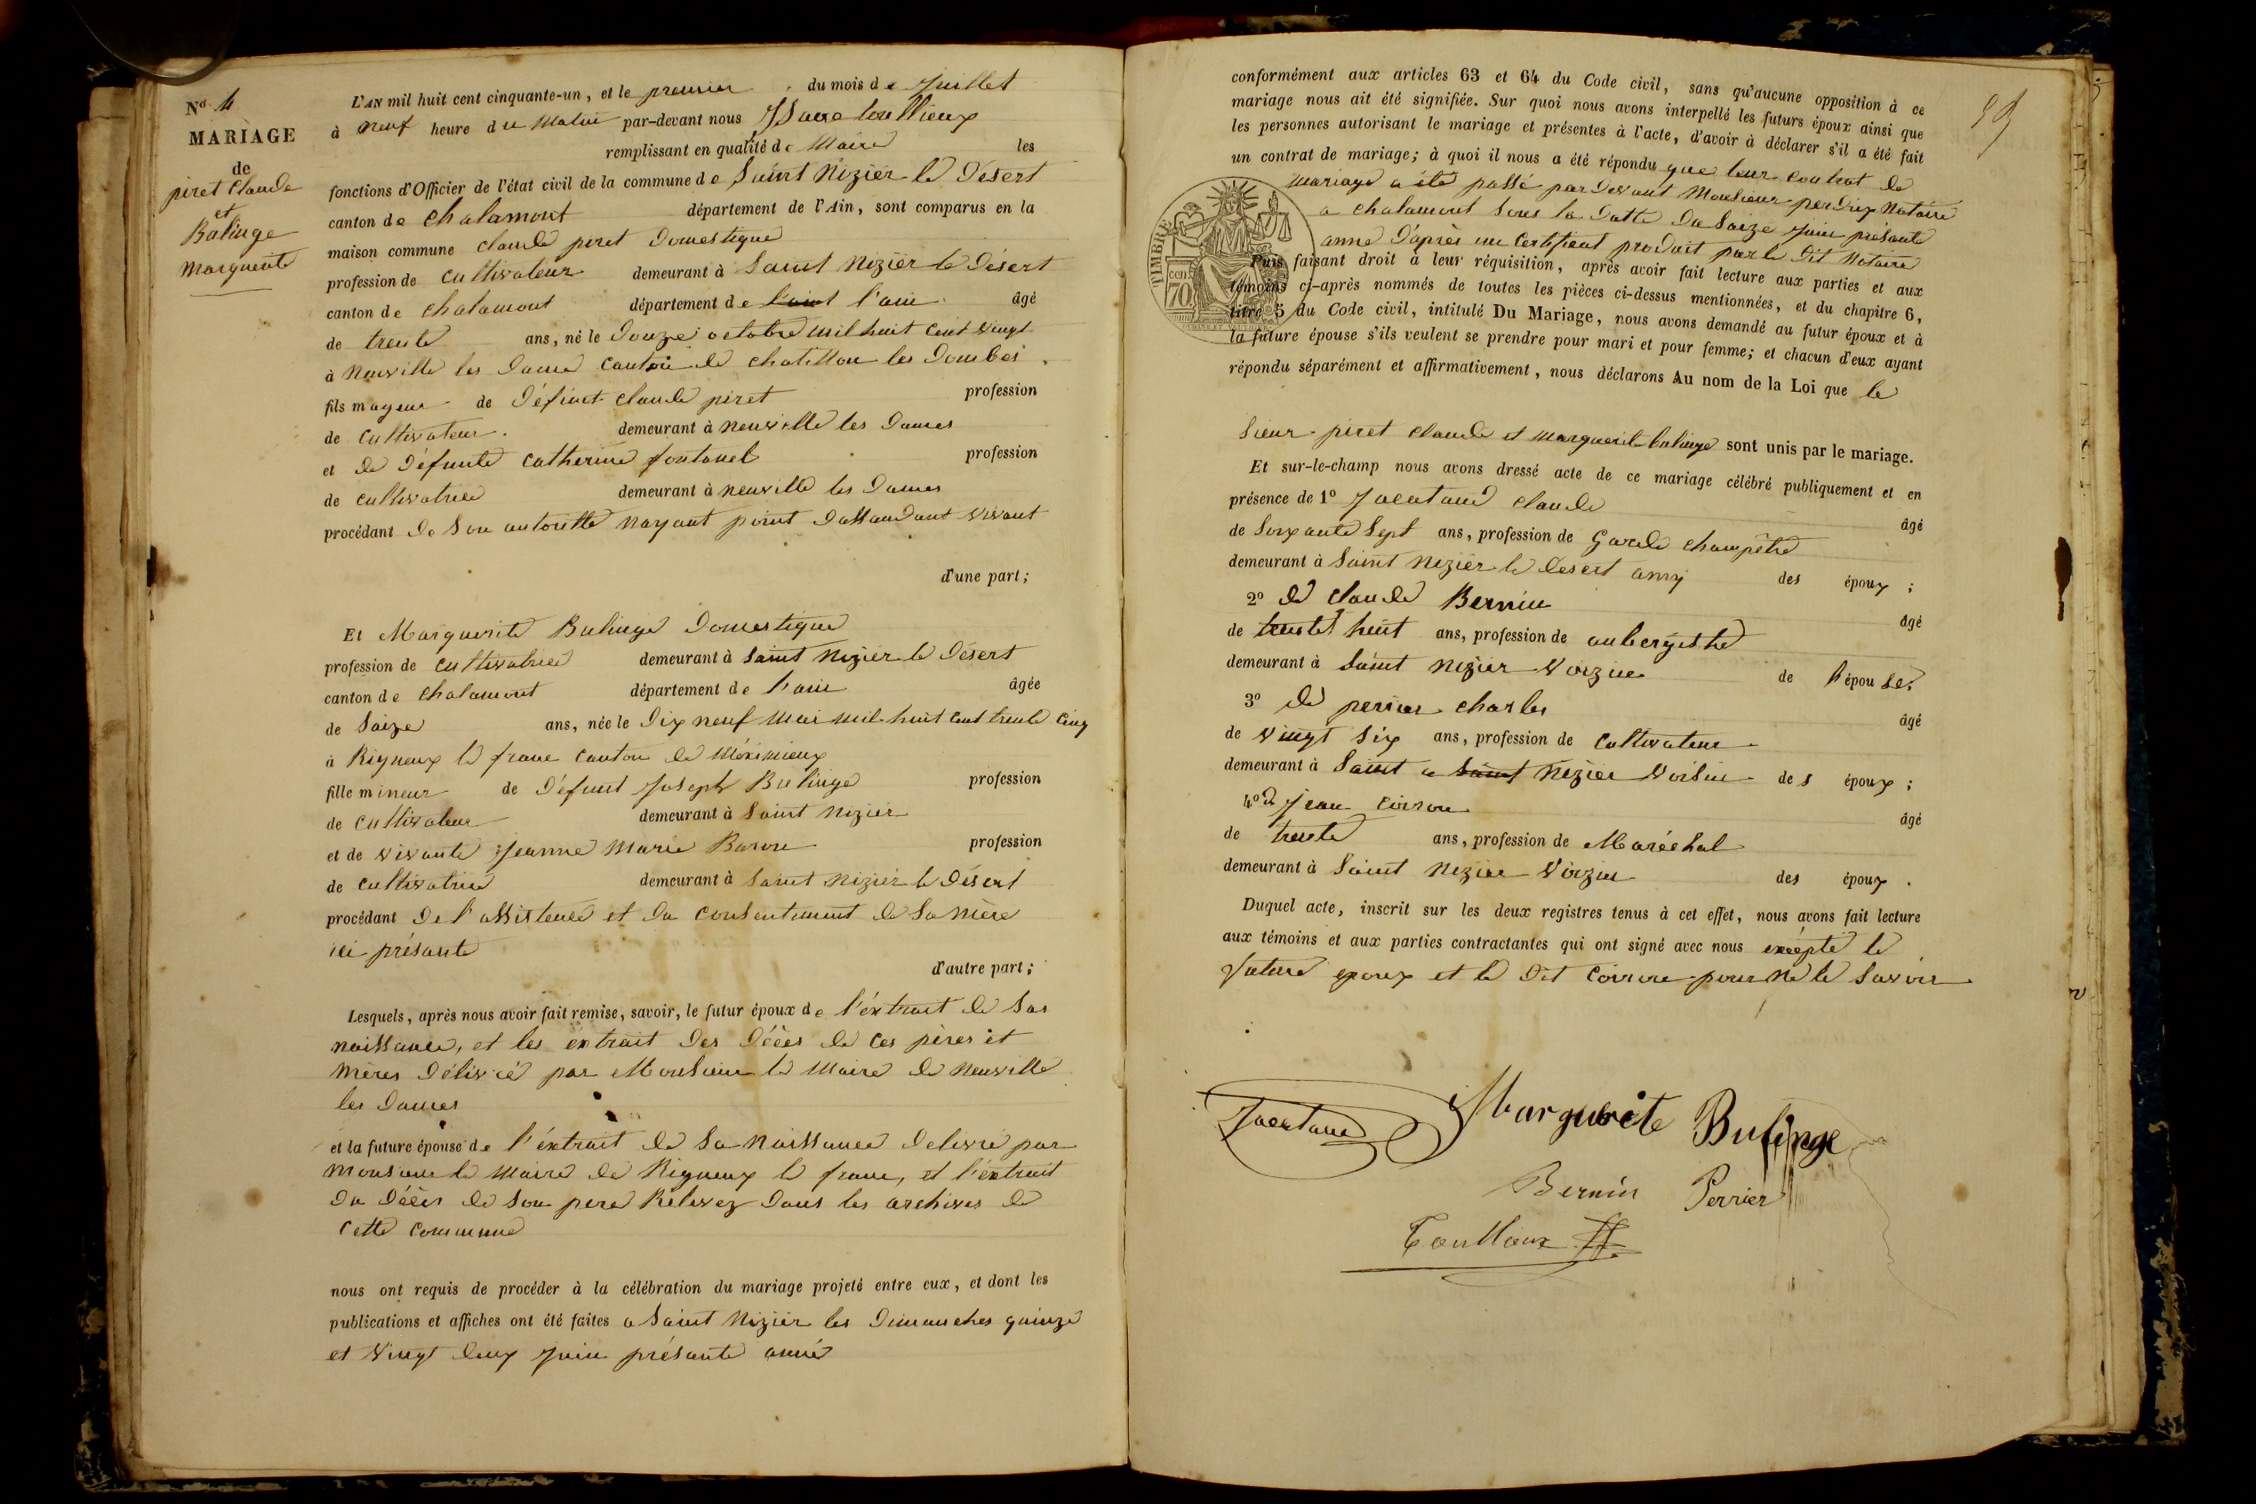 No 4
MARIAGE
de
piret Claude
et
Bulinge
Marguerite
L'AN mil huit cent cinquante-un, et le premier du mois de Juillet
à neuf heure du Matin par-devant nous Toullieux
remplissant en qualité de Maire les
fonctions d'Officier de l'état civil de la commune de Saint Nizier le Désert
canton de Chalamont département de l'Ain, sont comparus en la
maison commune claude piret Domestique
profession de cultivateur demeurant à Saint Nizier le Désert
canton de chalamont département de l'ain âgé
de trente ans, né le Douze octobre mil huit cent vingt
à Neuville les Dame canton de chatillon les Dombes
fils mageur de Défunt claude piret profession
de cultivateur demeurant à neuville les Dames
et de Défunte catherine fontanel profession
de cultivatrice demeurant à neuville les Dames
procédant de son autoritté nayant point dassandant vivant
d'une part;
Et Marguerite Bulinge Domestique
profession de cultivatrice demeurant à Saint Nizier le Désert
canton de chalamont département de l'ain âgée
de Saize ans, née le Dix neuf Mai mil huit cent trente cinq
à Rigneux le franc canton de Méximieux
fille mineur de Défunt Joseph Bulinge profession
de cultivateur demeurant à Saint Nizier
et de vivante Jeanne Marie Baron profession
de cultivatrice demeurant à Saint Nizier le Désert
procédant De l'assistence et du consentement de Sa Mère
ici présante
d'autre part;
Lesquels, après nous avoir fait remise, savoir, le futur époux de l'éxtrait de Sas
naissance, et les éxtrait des Décès de ces pères et
mères Délivré par Monsieur le Maire de Neuville
les Dames
et la future épouse de l'éxtrait de Sa Naissance Delivré par
Monsieur le Maire de Rigneux le franc, et l'éxtrait
du Décès de Son pere Relevez Dans les archives de
Cette commune
nous ont requis de procéder à la célébration du mariage projeté entre eux, et dont les
publications et affiches ont été faites a Saint Nizier les Dimanches quinze
et vingt deux Juin présante année
conformément aux articles 63 et 64 du Code civil, sans qu'aucune opposition à ce
mariage nous ait été signifiée. Sur quoi nous avons interpellé les futurs époux ainsi que
les personnes autorisant le mariage et présentes à l'acte, d'avoir à déclarer s'il a été fait
un contrat de mariage; à quoi il nous a été répondu que leur contrat de
mariage a été passé par Devant Monsieur perdrix Notaire
a chalamont Sous la Datte Du Saize Juin présante
anné D'après un Certificat produit par le Dit Notaire
TIMBRE
70
Puis faisant droit à leur réquisition, après avoir fait lecture aux parties et aux
témoins ci-après nommés de toutes les pièces ci-dessus mentionnées, et du chapitre 6,
titre 5 du Code civil, intitulé Du Mariage, nous avons demandé au futur époux et à
la future épouse s'ils veulent se prendre pour mari et pour femme; et chacun d'eux ayant
répondu séparément et affirmativement, nous déclarons Au nom de la Loi que le
Sieur piret claude et marguerite bulinge sont unis par le mariage.
Et sur-le-champ nous avons dressé acte de ce mariage célébré publiquement et en
présence de 1º claude
âgé
de Soixante Sept ans, profession de Garde champêtre
demeurant à Saint Nizier le Desert amy des époux;
2º de claude Bernin
âgé
de trente huit ans, profession de aubergiste
demeurant à Saint Nizier Voizin de l'épouse.
3º de perrier charles
âgé
de vingt Six ans, profession de cultivateur
demeurant à Saint a Saint Nizier Voisin des époux;
4º de Jean
âgé
de trente ans, profession de Maréchal
demeurant à Saint Nizier Voizin des époux.
Duquel acte, inscrit sur les deux registres tenus à cet effet, nous avons fait lecture
aux témoins et aux parties contractantes qui ont signé avec nous excépté le
future epoux et le Dit pour ne le Savoir
Marguerite Bulinge
Bernin Perrier
Toullieux